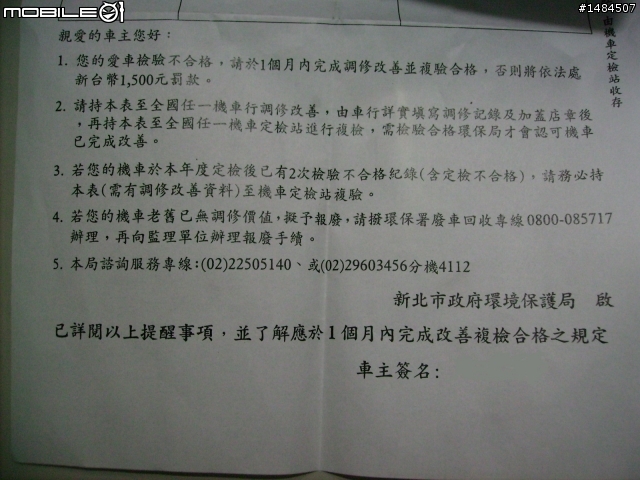 MOBILE01
#1484507
由機車定檢站收存
親愛的車主您好：
1. 您的愛車檢驗不合格，請於1個月內完成調修改善並複驗合格，否則將依法處
新台幣1,500元罰款。
2. 請持本表至全國任一機車行調修改善，由車行詳實填寫調修記錄及加蓋店章後
，再持本表至全國任一機車定檢站進行複檢，需檢驗合格環保局才會認可機車
已完成改善。
3. 若您的機車於本年度定檢後已有2次檢驗不合格紀錄(含定檢不合格)，請務必持
本表(需有調修改善資料)至機車定檢站複驗。
4. 若您的機車老舊已無調修價值，擬予報廢，請撥環保署廢車回收專線0800-085717
辦理，再向監理單位辦理報廢手續。
5. 本局諮詢服務專線:(02)22505140、或(02)29603456分機4112
新北市政府環境保護局 啟
已詳閱以上提醒事項，並了解應於1個月內完成改善複檢合格之規定
車主簽名: